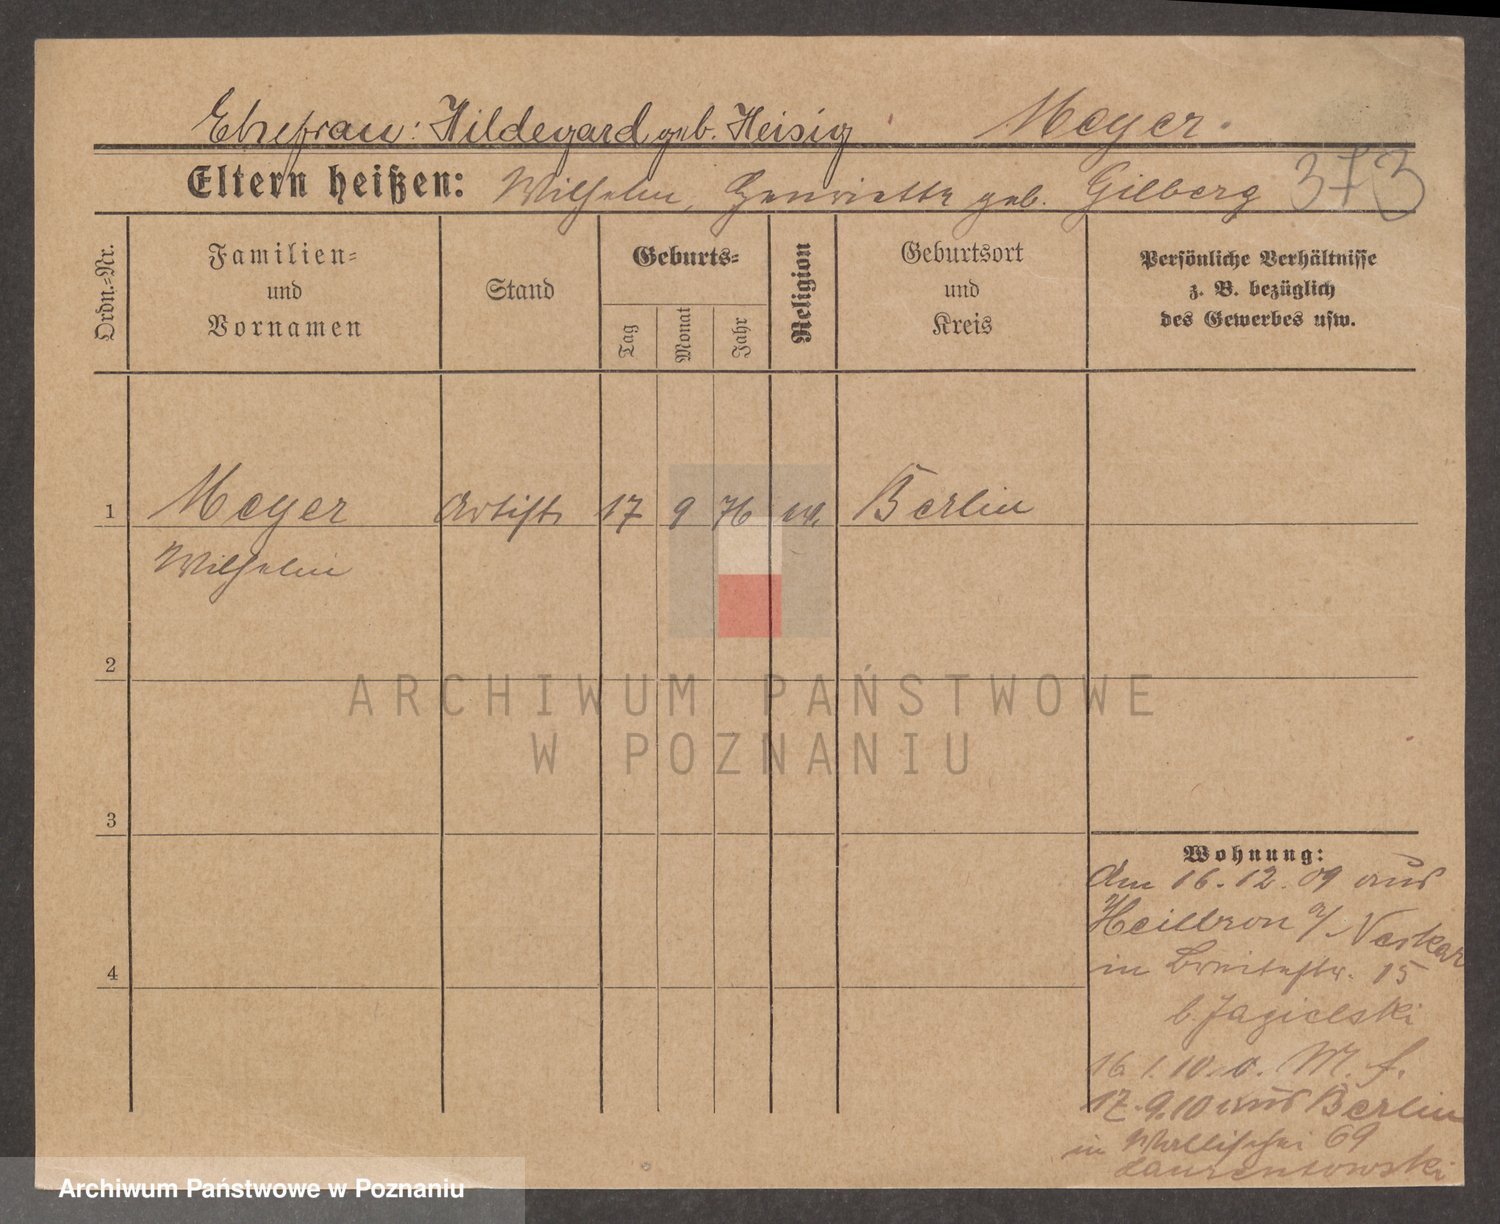 Ehefrau: Hildegard geb. Heisig Meyer.
Eltern heißen: Wilhelm, Henriette geb. Gilberg 373
Ordn.-Nr.
Familien-
und
Vornamen
Stand
Geburts-
Tag
Monat
Jahr
Religion
Geburtsort
und
Kreis
Persönliche Verhältnisse
z. B. bezüglich
des Gewerbes usw.
1 Meyer Artist 17 9 76 ev. Berlin
Wilhelm
2
ARCHIWUM PAŃSTWOWE
W POZNANIU
3
Wohnung:
Am 16.12.09 aus
Heilbron a/ Neckar
in Breitestr. 15
b. Jagielski
4
16.1.10 M. f.
17.9.10 aus Berlin
in Wallischei 69
Laurentowski
Archiwum Państwowe w Poznaniu